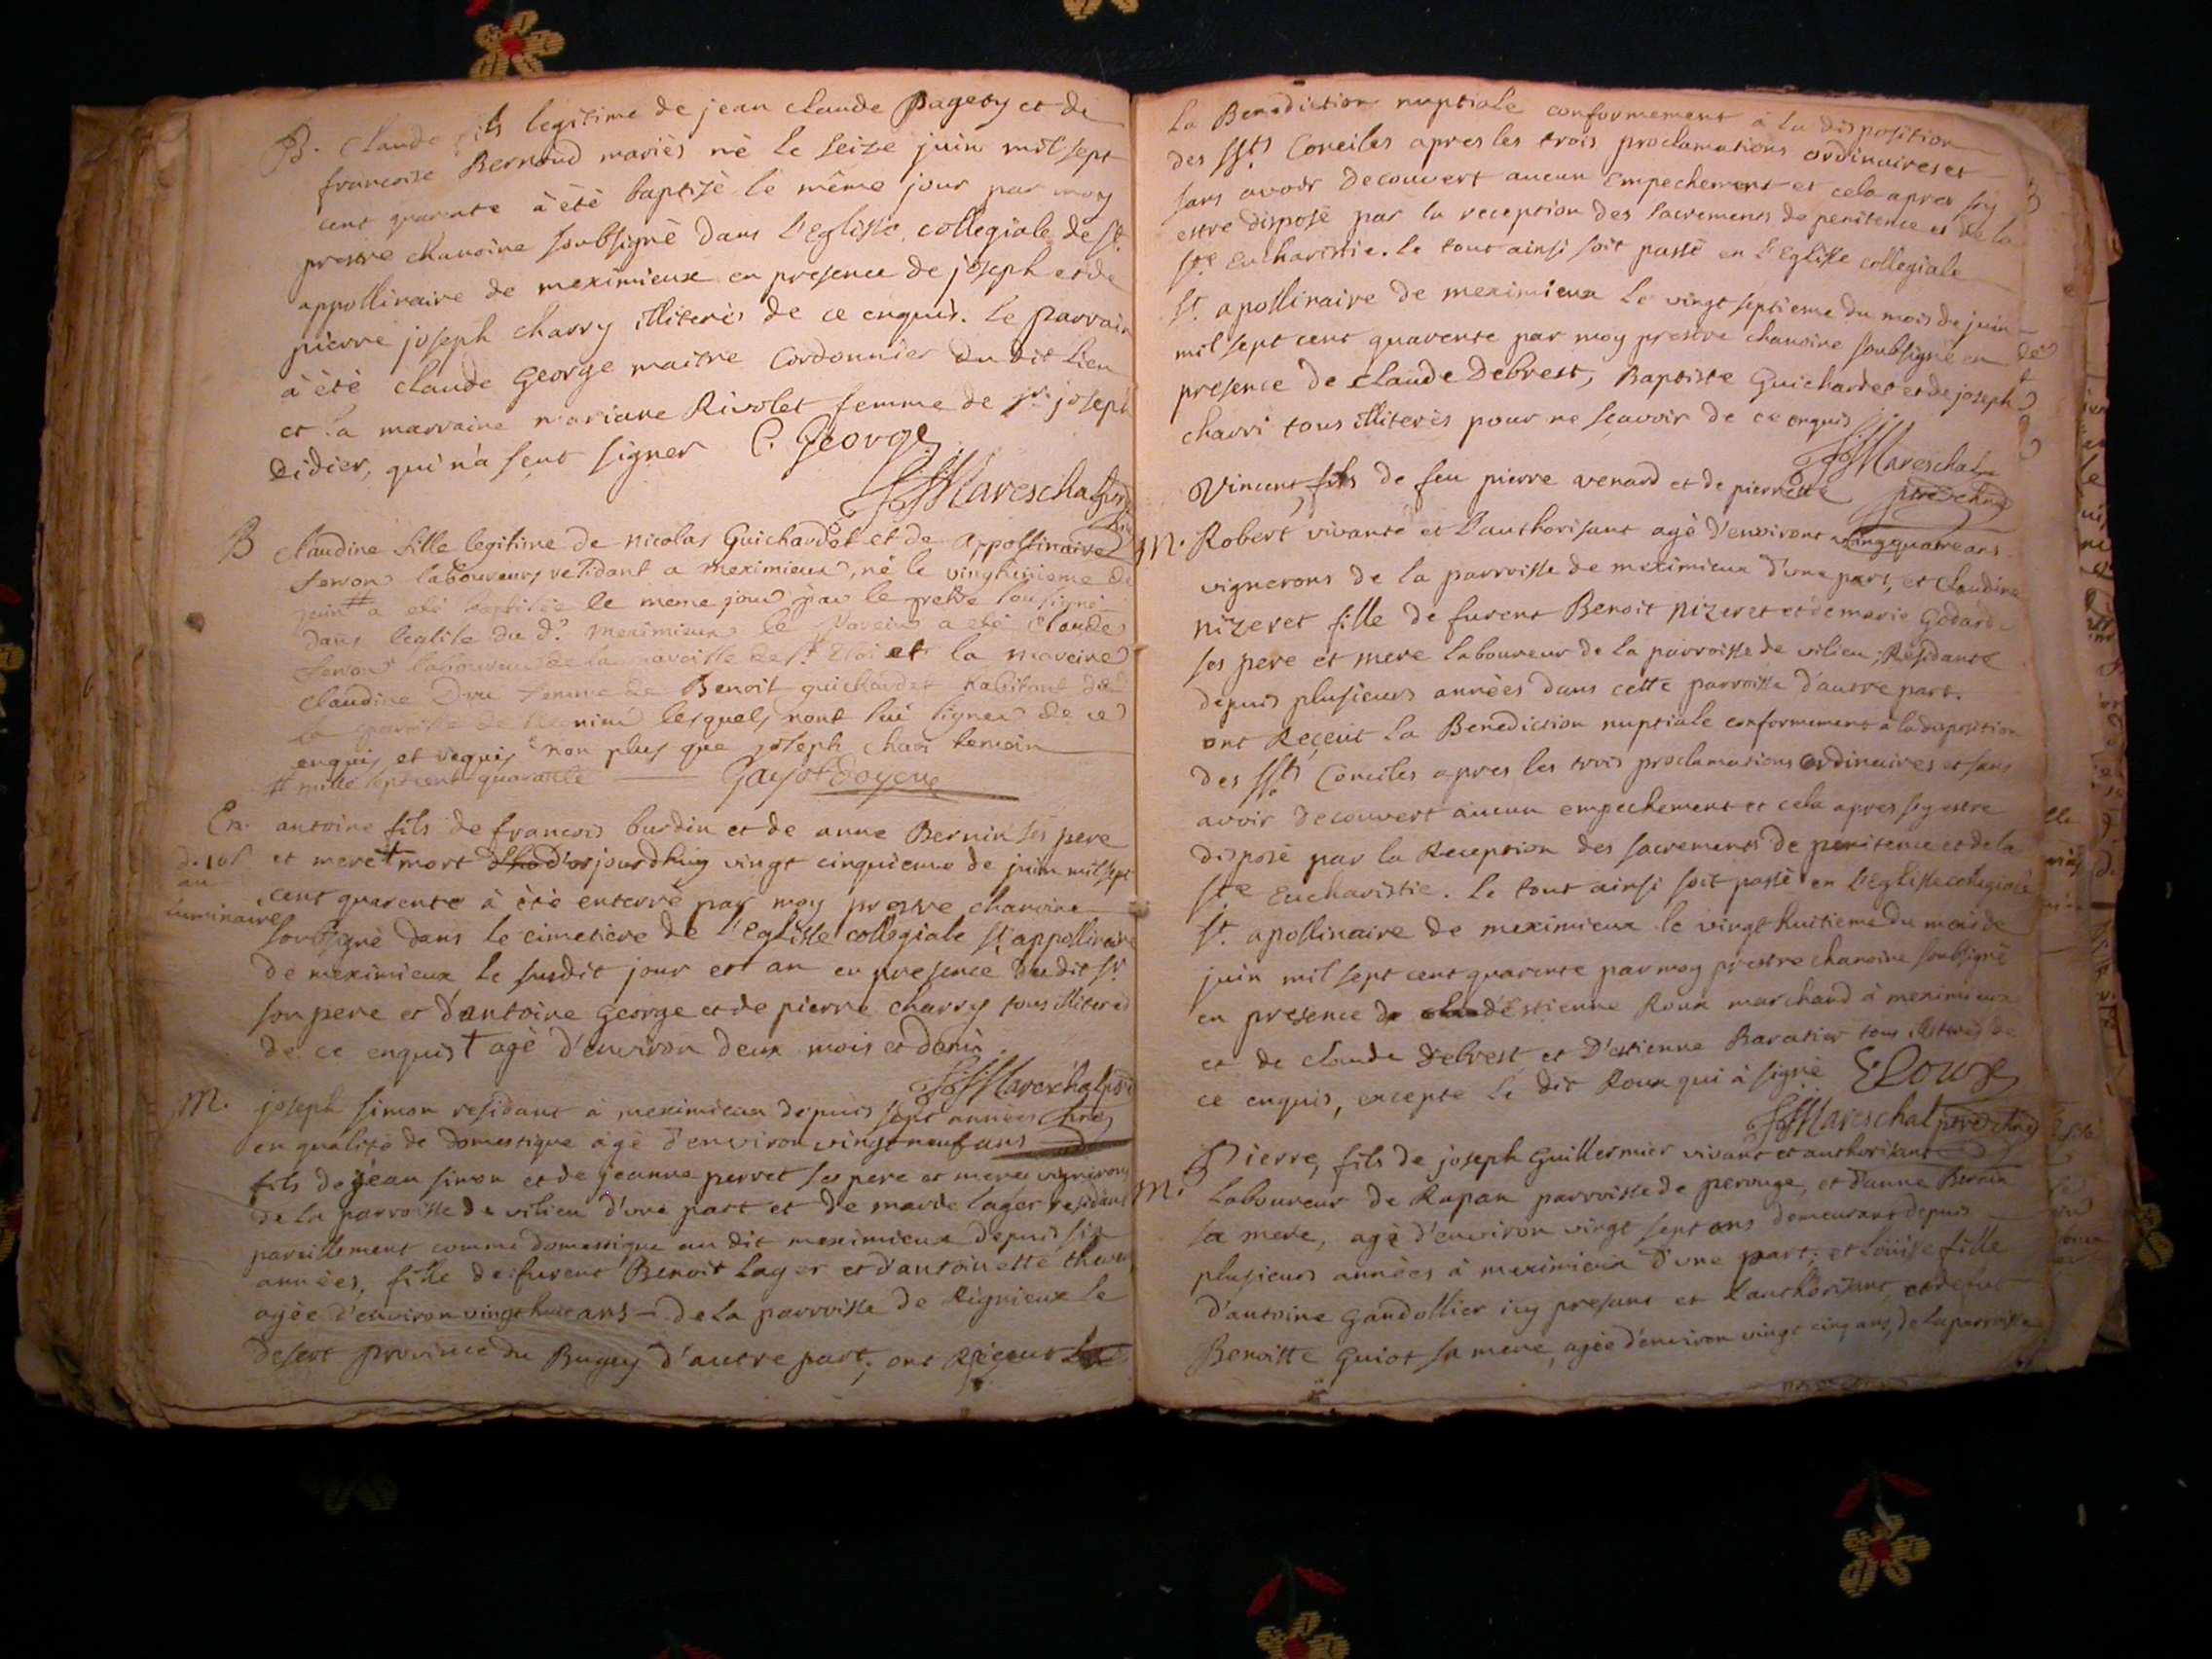 B. Claude fils legitime de jean claude Pagety et de
francoise Bernoud mariés né le seize juin mil sept
cent quarente à été baptisé le même jour par moy
prestre chanoine soubsigné dans l'Eglisse collegiale de St.
appollinaire de meximieux en presence de joseph et de
pierre joseph charry illiterés de ce enquis. le parrain
à été claude George maitre Cordonnier du dit lien
et la marraine mariane Rivolet femme de sr. joseph
Didier, qui n'a sçut signer C. George
JJMareschal
B claudine fille legitime de nicolas Guichardet et de appollinaire
fenion laboureurs residant a meximieux, né le vingtunieme de
juin # a eté baptisée le meme jour par le pretre sousigné
dans leglise du d. meximieux le parein a eté Claude
fenion laboureur de la paroisse de St. Eloi et la mareine
Claudine Dru femme de Benoit guichardet habitant de
la paroisse de lesquels nont sué signer de ce
enquis et requis non plus que joseph chari temoin
# mille sept cent quarante Gayot doyene
En. antoine fils de francois burdin et de anne Bernin ses pere
et mere + mort d'aujourdhuy vingt cinquieme de juin mil sept
cent quarente à été enterré par moy prestre chanoine
luminaire
soubsigné dans le cimetiere de l'Eglisse collegiale St. appollinaire
de meximieux le susdit jour et an en presence dudit sr.
son pere et d'antoine George et de pierre charry tous illiterés
de ce enquis + agé d'environ deux mois et demi
JJMareschal
M. joseph simon residant à meximieux depuis sept années
en qualité de domestique agé d'environ vingt neuf ans
fils de jean simon et de jeanne perret ses pere et mere vignerons
de la parroisse de vilieu d'une part et de marie lager residant
pareillement comme domestique au dit meximieux depuis six
années, fille de furent Benoit lager et d'antoinette
agée d'environ vingt huit ans – de la parroisse de Rignieux le
desert province du Bugey d'autre part, ont Reçeut
la Benediction nuptiale conformement à la disposition
des SSts Conciles apres les trois proclamations ordinaires et
sans avoir Decouvert aucun Empechement et cela apres sy
estre disposé par la reception des sacrements de penitence et de la
Ste Eucharistie. le tout ainsi soit passé en l'Eglisse collegiale
St. apollinaire de meximieux le vingt septieme du mois de juin –
mil sept cent quarente par moy prestre chanoine soubsigné en
presence de claude Debrest, Baptiste Guichardet et de joseph
charri tous illiterés pour ne sçavoir de ce enquis
JJMareschal
Vincent, fils de feu pierre venard et de pierrette ptre chne
M. Robert vivante et l'authorisant agé d'environt vingquatre ans
vignerons de la parroisse de meximieux d'une part, et Claudine
nizeret fille de furent Benoit nizeret et de marie Godard
ses pere et mere laboureur de la parroisse de vilieu, Residante
depuis plusieurs années dans cette parroisse d'autre part.
ont Reçeüt la Benediction nuptiale conformement à la disposition
des SSts Conciles apres les trois proclamations ordinaires et sans
avoir decouvert aucun empechement et cela apres sy estre
disposé par la Reception des sacrements de penitence et de la
Ste Eucharistie. le tout ainsi soit passé en l'Eglisse collegiale
St. apollinaire de meximieux le vingt huitieme du mois de
juin mil sept cent quarente par moy prestre chanoine soubsigné
en presence d'Estienne Roux marchand à meximieux
et de claude Debrest et D'estienne Baratier tous illiterés de
ce enquis, excepté le dit Roux qui à signé ERoux
JJMareschal ptre chne
Pierre, fils de joseph Guillermier vivant et authorisant
M. Laboureur de Rapan parroisse de perouge, et d'anne Bernin
sa mere, agé d'environ vingt sept ans demeurant depuis
plusieurs années à meximieux d'une part; et loüise fille
d'antoine Gandollier icy present et l'authorisant, et de fut
Benoitte Guiot sa mere, agée d'environ vingt cinq ans, de la parroisse